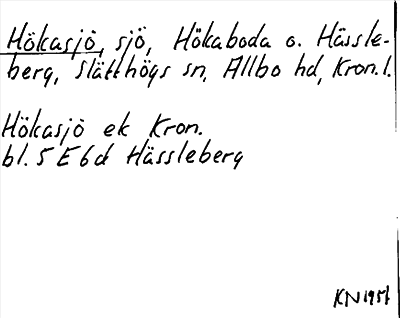 Hökasjö, sjö, Hökaboda o. Hässle-
berg, Slätthögs sn, Allbo hd, Kron.l.
Hökasjö ek Kron.
bl. 5 E 6 d Hässleberg
KN 1951